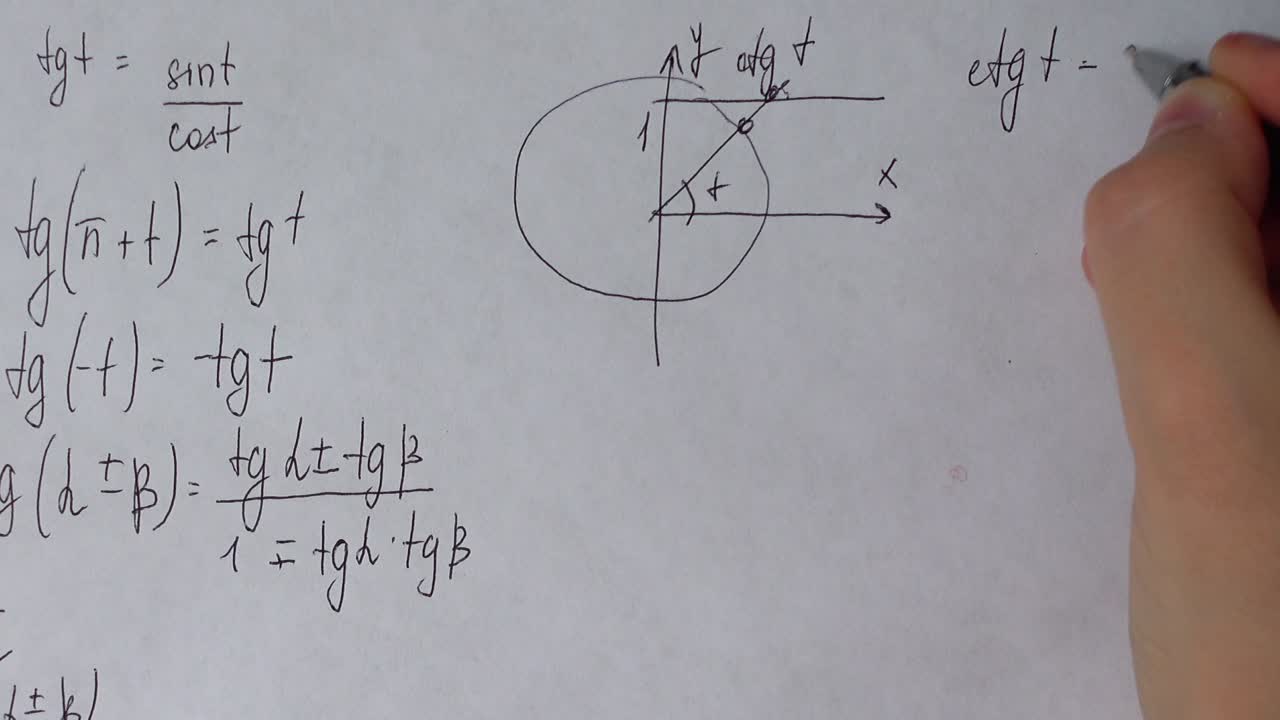 tg t = sin t / cos t
tg(π + t) = tg t
tg(-t) = -tg t
g(α ± β) = (tg α ± tg β) / (1 ∓ tg α · tg β)
α ± β)
y
ctg t
1
t
x
ctg t =